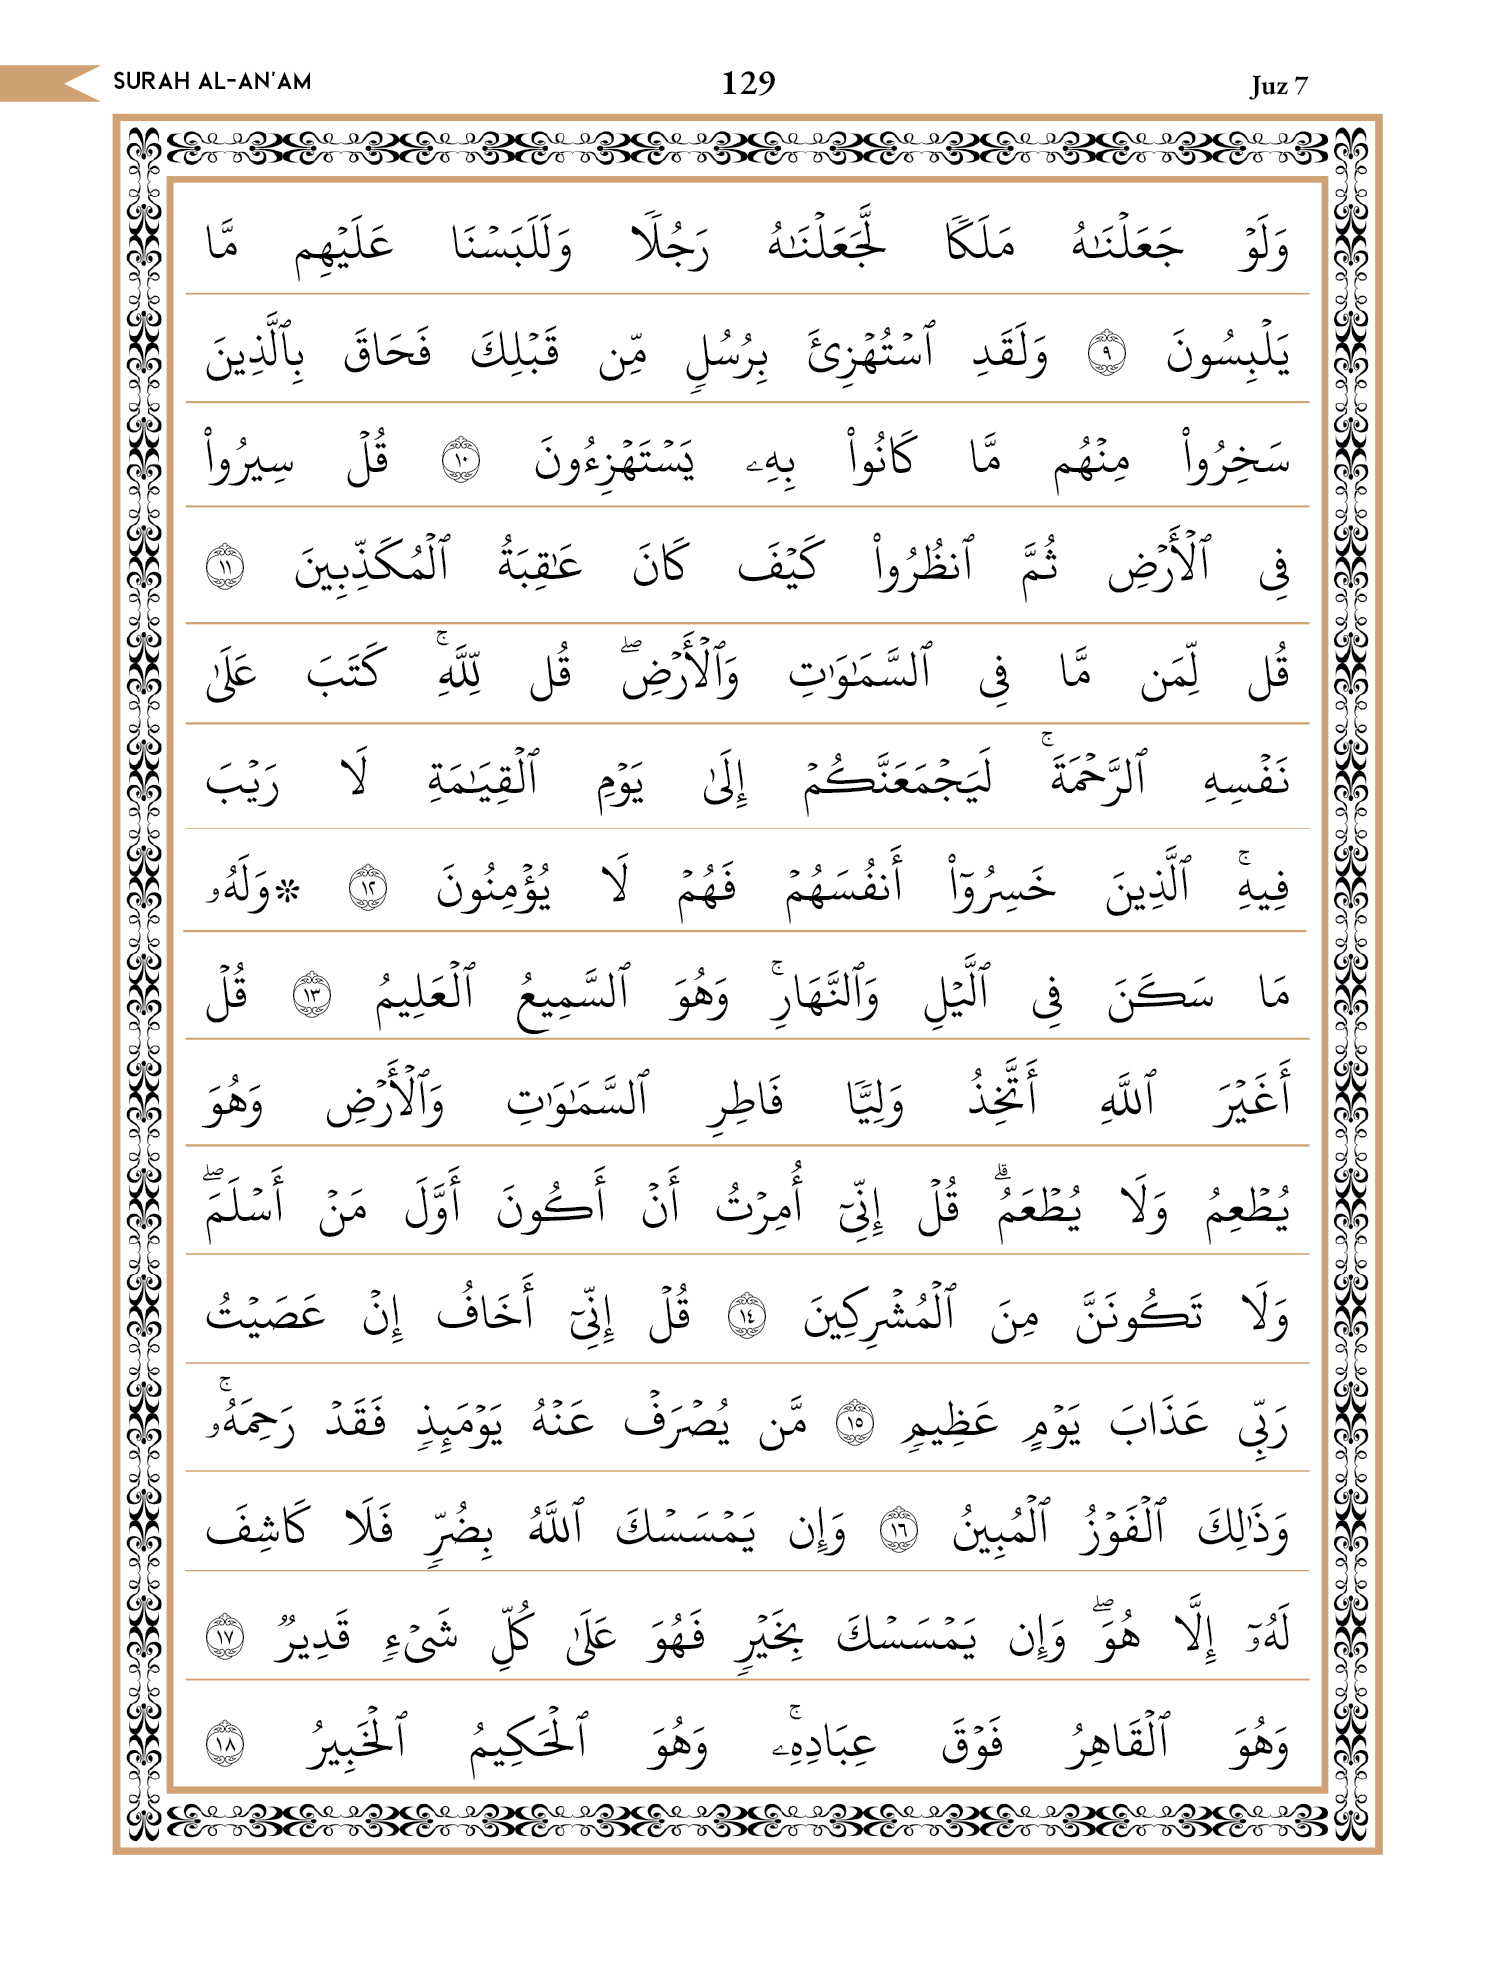 SURAH AL-AN'AM 129 Juz 7
وَلَوۡ جَعَلۡنَٰهُ مَلَكٗا لَّجَعَلۡنَٰهُ رَجُلٗا وَلَلَبَسۡنَا عَلَيۡهِم مَّا
يَلۡبِسُونَ ٩ وَلَقَدِ ٱسۡتُهۡزِئَ بِرُسُلٖ مِّن قَبۡلِكَ فَحَاقَ بِٱلَّذِينَ
سَخِرُواْ مِنۡهُم مَّا كَانُواْ بِهِۦ يَسۡتَهۡزِءُونَ ١٠ قُلۡ سِيرُواْ
فِي ٱلۡأَرۡضِ ثُمَّ ٱنظُرُواْ كَيۡفَ كَانَ عَٰقِبَةُ ٱلۡمُكَذِّبِينَ ١١
قُل لِّمَن مَّا فِي ٱلسَّمَٰوَٰتِ وَٱلۡأَرۡضِۖ قُل لِّلَّهِۚ كَتَبَ عَلَىٰ
نَفۡسِهِ ٱلرَّحۡمَةَۚ لَيَجۡمَعَنَّكُمۡ إِلَىٰ يَوۡمِ ٱلۡقِيَٰمَةِ لَا رَيۡبَ
فِيهِۚ ٱلَّذِينَ خَسِرُوٓاْ أَنفُسَهُمۡ فَهُمۡ لَا يُؤۡمِنُونَ ١٢ ۞وَلَهُۥ
مَا سَكَنَ فِي ٱلَّيۡلِ وَٱلنَّهَارِۚ وَهُوَ ٱلسَّمِيعُ ٱلۡعَلِيمُ ١٣ قُلۡ
أَغَيۡرَ ٱللَّهِ أَتَّخِذُ وَلِيّٗا فَاطِرِ ٱلسَّمَٰوَٰتِ وَٱلۡأَرۡضِ وَهُوَ
يُطۡعِمُ وَلَا يُطۡعَمُۗ قُلۡ إِنِّيٓ أُمِرۡتُ أَنۡ أَكُونَ أَوَّلَ مَنۡ أَسۡلَمَۖ
وَلَا تَكُونَنَّ مِنَ ٱلۡمُشۡرِكِينَ ١٤ قُلۡ إِنِّيٓ أَخَافُ إِنۡ عَصَيۡتُ
رَبِّي عَذَابَ يَوۡمٍ عَظِيمٖ ١٥ مَّن يُصۡرَفۡ عَنۡهُ يَوۡمَئِذٖ فَقَدۡ رَحِمَهُۥۚ
وَذَٰلِكَ ٱلۡفَوۡزُ ٱلۡمُبِينُ ١٦ وَإِن يَمۡسَسۡكَ ٱللَّهُ بِضُرّٖ فَلَا كَاشِفَ
لَهُۥٓ إِلَّا هُوَۖ وَإِن يَمۡسَسۡكَ بِخَيۡرٖ فَهُوَ عَلَىٰ كُلِّ شَيۡءٖ قَدِيرٞ ١٧
وَهُوَ ٱلۡقَاهِرُ فَوۡقَ عِبَادِهِۦۚ وَهُوَ ٱلۡحَكِيمُ ٱلۡخَبِيرُ ١٨